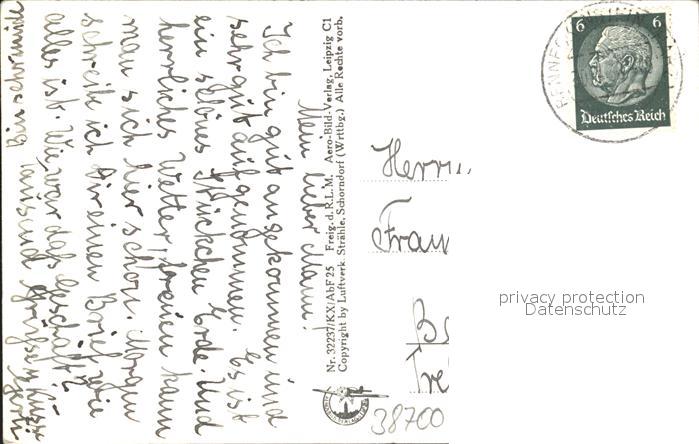 Mein lieber Mann!
Ich bin gut angekommen und
sehr gut aufgenommen. Es ist
ein schönes Stückchen Erde. Und
herrliches Wetter, freuen kann
man sich hier schon. Morgen
schreibe ich Dir einen Brief wie
alles ist. Wie war das Geschäft?
Bin sehr müde
tausend Grüße u. Küsse
Nr. 32237/KX/AbF25 Freig. d. R.L.M. Aero-Bild-Verlag, Leipzig C1
Copyright by Luftverk. Strähle, Schorndorf (Wrttbg.) Alle Rechte vorb.
6 6
Deutsches Reich
Herrn
Frau
38700
privacy protection
Datenschutz